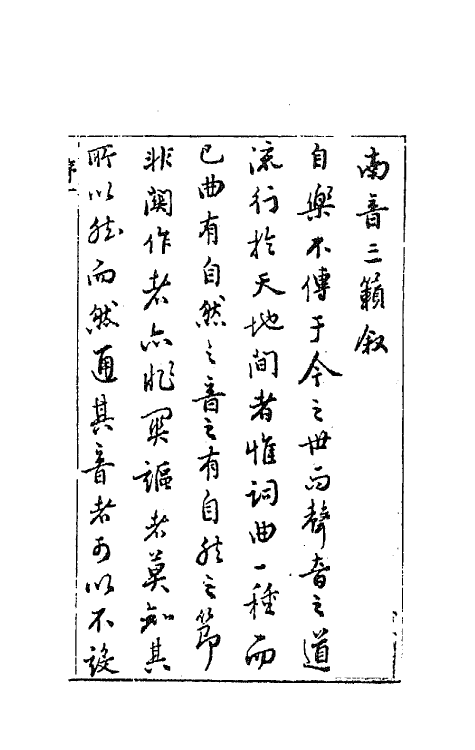 南音三籟叙
自樂不傳于今之世而聲音之道
流行於天地間者惟詞曲一種而
已曲有自然之音音有自然之節
非関作者亦非関謳者莫知其
所以然而然通其音者可以不設
序一